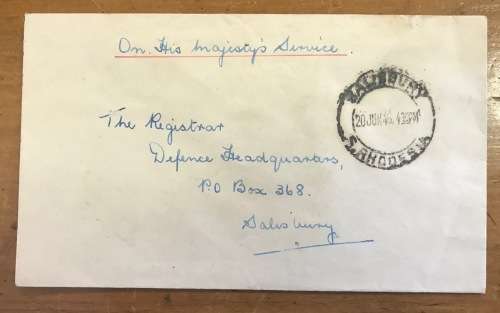 On His Majesty's Service.
SALISBURY
20 JUN
S. RHODESIA
The Registrar
Defence Headquarters,
P O Box 368.
Salisbury